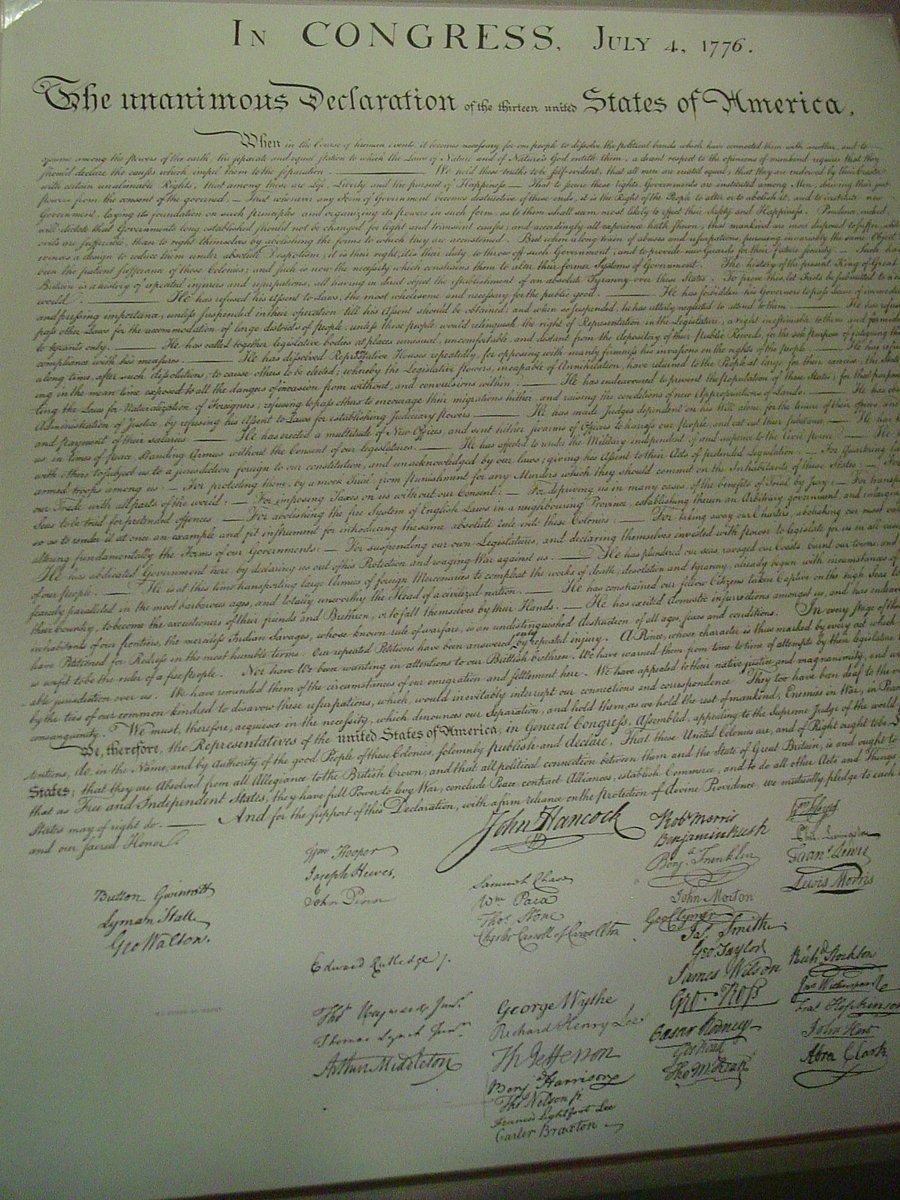 IN CONGRESS, JULY 4, 1776.
The unanimous Declaration of the thirteen united States of America,
When in the Course of human events, it becomes necessary for one people to dissolve the political bands which have connected them with another, and to
assume among the powers of the earth, the separate and equal station to which the Laws of Nature and of Nature's God entitle them, a decent respect to the opinions of mankind requires that they
should declare the causes which impel them to the separation. — We hold these truths to be self-evident, that all men are created equal, that they are endowed by their Creator
with certain unalienable Rights, that among these are Life, Liberty and the pursuit of Happiness — That to secure these rights, Governments are instituted among Men, deriving their just
powers from the consent of the governed, — That whenever any Form of Government becomes destructive of these ends, it is the Right of the People to alter or to abolish it, and to institute new
Government, laying its foundation on such principles and organizing its powers in such form, as to them shall seem most likely to effect their Safety and Happiness. Prudence, indeed,
will dictate that Governments long established should not be changed for light and transient causes; and accordingly all experience hath shewn, that mankind are more disposed to suffer, while
evils are sufferable, than to right themselves by abolishing the forms to which they are accustomed. But when a long train of abuses and usurpations, pursuing invariably the same Object
evinces a design to reduce them under absolute Despotism, it is their right, it is their duty, to throw off such Government, and to provide new Guards for their future security. — Such has
been the patient sufferance of these Colonies; and such is now the necessity which constrains them to alter their former Systems of Government. The history of the present King of Great
Britain is a history of repeated injuries and usurpations, all having in direct object the establishment of an absolute Tyranny over these States. To prove this, let Facts be submitted to a
world. — He has refused his Assent to Laws, the most wholesome and necessary for the public good. — He has forbidden his Governors to pass Laws of immediate
and pressing importance, unless suspended in their operation till his Assent should be obtained; and when so suspended, he has utterly neglected to attend to them. — He has refused
pass other Laws for the accommodation of large districts of people, unless those people would relinquish the right of Representation in the Legislature, a right inestimable to them and formidable
to tyrants only. — He has called together legislative bodies at places unusual, uncomfortable, and distant from the depository of their public Records, for the sole purpose of fatiguing them
compliance with his measures. — He has dissolved Representative Houses repeatedly, for opposing with manly firmness his invasions on the rights of the people. — He has refused
a long time, after such dissolutions, to cause others to be elected; whereby the Legislative powers, incapable of Annihilation, have returned to the People at large for their exercise; the State
ing in the mean time exposed to all the dangers of invasion from without, and convulsions within. — He has endeavoured to prevent the population of these States; for that purpose
ting the Laws for Naturalization of Foreigners; refusing to pass others to encourage their migrations hither, and raising the conditions of new Appropriations of Lands. — He has
Administration of Justice, by refusing his Assent to Laws for establishing Judiciary powers. — He has made Judges dependent on his Will alone, for the tenure of their offices, and
and payment of their salaries. — He has erected a multitude of New Offices, and sent hither swarms of Officers to harrass our people, and eat out their substance. — He has
us, in times of peace, Standing Armies without the Consent of our legislatures. — He has affected to render the Military independent of and superior to the Civil power. — He
with others to subject us to a jurisdiction foreign to our constitution, and unacknowledged by our laws; giving his Assent to their Acts of pretended Legislation: — For Quartering
armed troops among us: — For protecting them, by a mock Trial, from punishment for any Murders which they should commit on the Inhabitants of these States: —
our Trade with all parts of the world: — For imposing Taxes on us without our Consent: — For depriving us in many cases, of the benefits of Trial by Jury: — For
Seas to be tried for pretended offences — For abolishing the free System of English Laws in a neighbouring Province, establishing therein an Arbitrary government, and
so as to render it at once an example and fit instrument for introducing the same absolute rule into these Colonies: — For taking away our Charters, abolishing our most
altering fundamentally the Forms of our Governments: — For suspending our own Legislatures, and declaring themselves invested with power to legislate for us in all
He has abdicated Government here, by declaring us out of his Protection and waging War against us. — He has plundered our seas, ravaged our Coasts, burnt our towns, and
of our people. — He is at this time transporting large Armies of foreign Mercenaries to compleat the works of death, desolation and tyranny, already begun with circumstances of
scarcely paralleled in the most barbarous ages, and totally unworthy the Head of a civilized nation. — He has constrained our fellow Citizens taken Captive on the high Seas
their Country, to become the executioners of their friends and Brethren, or to fall themselves by their Hands. — He has excited domestic insurrections amongst us, and has
inhabitants of our frontiers, the merciless Indian Savages, whose known rule of warfare, is an undistinguished destruction of all ages, sexes and conditions. In every stage of these
have Petitioned for Redress in the most humble terms: Our repeated Petitions have been answered only by repeated injury. A Prince, whose character is thus marked by every act which
is unfit to be the ruler of a free people. Nor have We been wanting in attentions to our Brittish brethren. We have warned them from time to time of attempts by their legislature
able jurisdiction over us. We have reminded them of the circumstances of our emigration and settlement here. We have appealed to their native justice and magnanimity, and
by the ties of our common kindred to disavow these usurpations, which, would inevitably interrupt our connections and correspondence. They too have been deaf to the
consanguinity. We must, therefore, acquiesce in the necessity, which denounces our Separation, and hold them, as we hold the rest of mankind, Enemies in War, in Peace
We, therefore, the Representatives of the united States of America, in General Congress, Assembled, appealing to the Supreme Judge of the world
tentions, do, in the Name, and by Authority of the good People of these Colonies, solemnly publish and declare, That these United Colonies are, and of Right ought to be
States; that they are Absolved from all Allegiance to the British Crown, and that all political connection between them and the State of Great Britain, is and ought to
that as Free and Independent States, they have full Power to levy War, conclude Peace, contract Alliances, establish Commerce, and to do all other Acts and Things
States may of right do. — And for the support of this Declaration, with a firm reliance on the protection of divine Providence, we mutually pledge to each
and our sacred Honor.
John Hancock
Button Gwinnett
Lyman Hall
Geo Walton.
Wm Hooper
Joseph Hewes,
John Penn
Edward Rutledge /.
Thos Heyward Junr.
Thomas Lynch Junr.
Arthur Middleton
Samuel Chase
Wm Paca
Thos Stone
Charles Carroll of Carrollton
George Wythe
Richard Henry Lee
Th Jefferson
Benj Harrison
Thos Nelson jr.
Francis Lightfoot Lee
Carter Braxton
Robt Morris
Benjamin Rush
Benj. Franklin
John Morton
Geo Clymer
Jas. Smith
Geo. Taylor
James Wilson
Geo. Ross
Caesar Rodney
Geo Read
Tho M:Kean
Wm Floyd
Phil. Livingston
Frans. Lewis
Lewis Morris
Richd. Stockton
Jno Witherspoon
Fras. Hopkinson
John Hart
Abra Clark